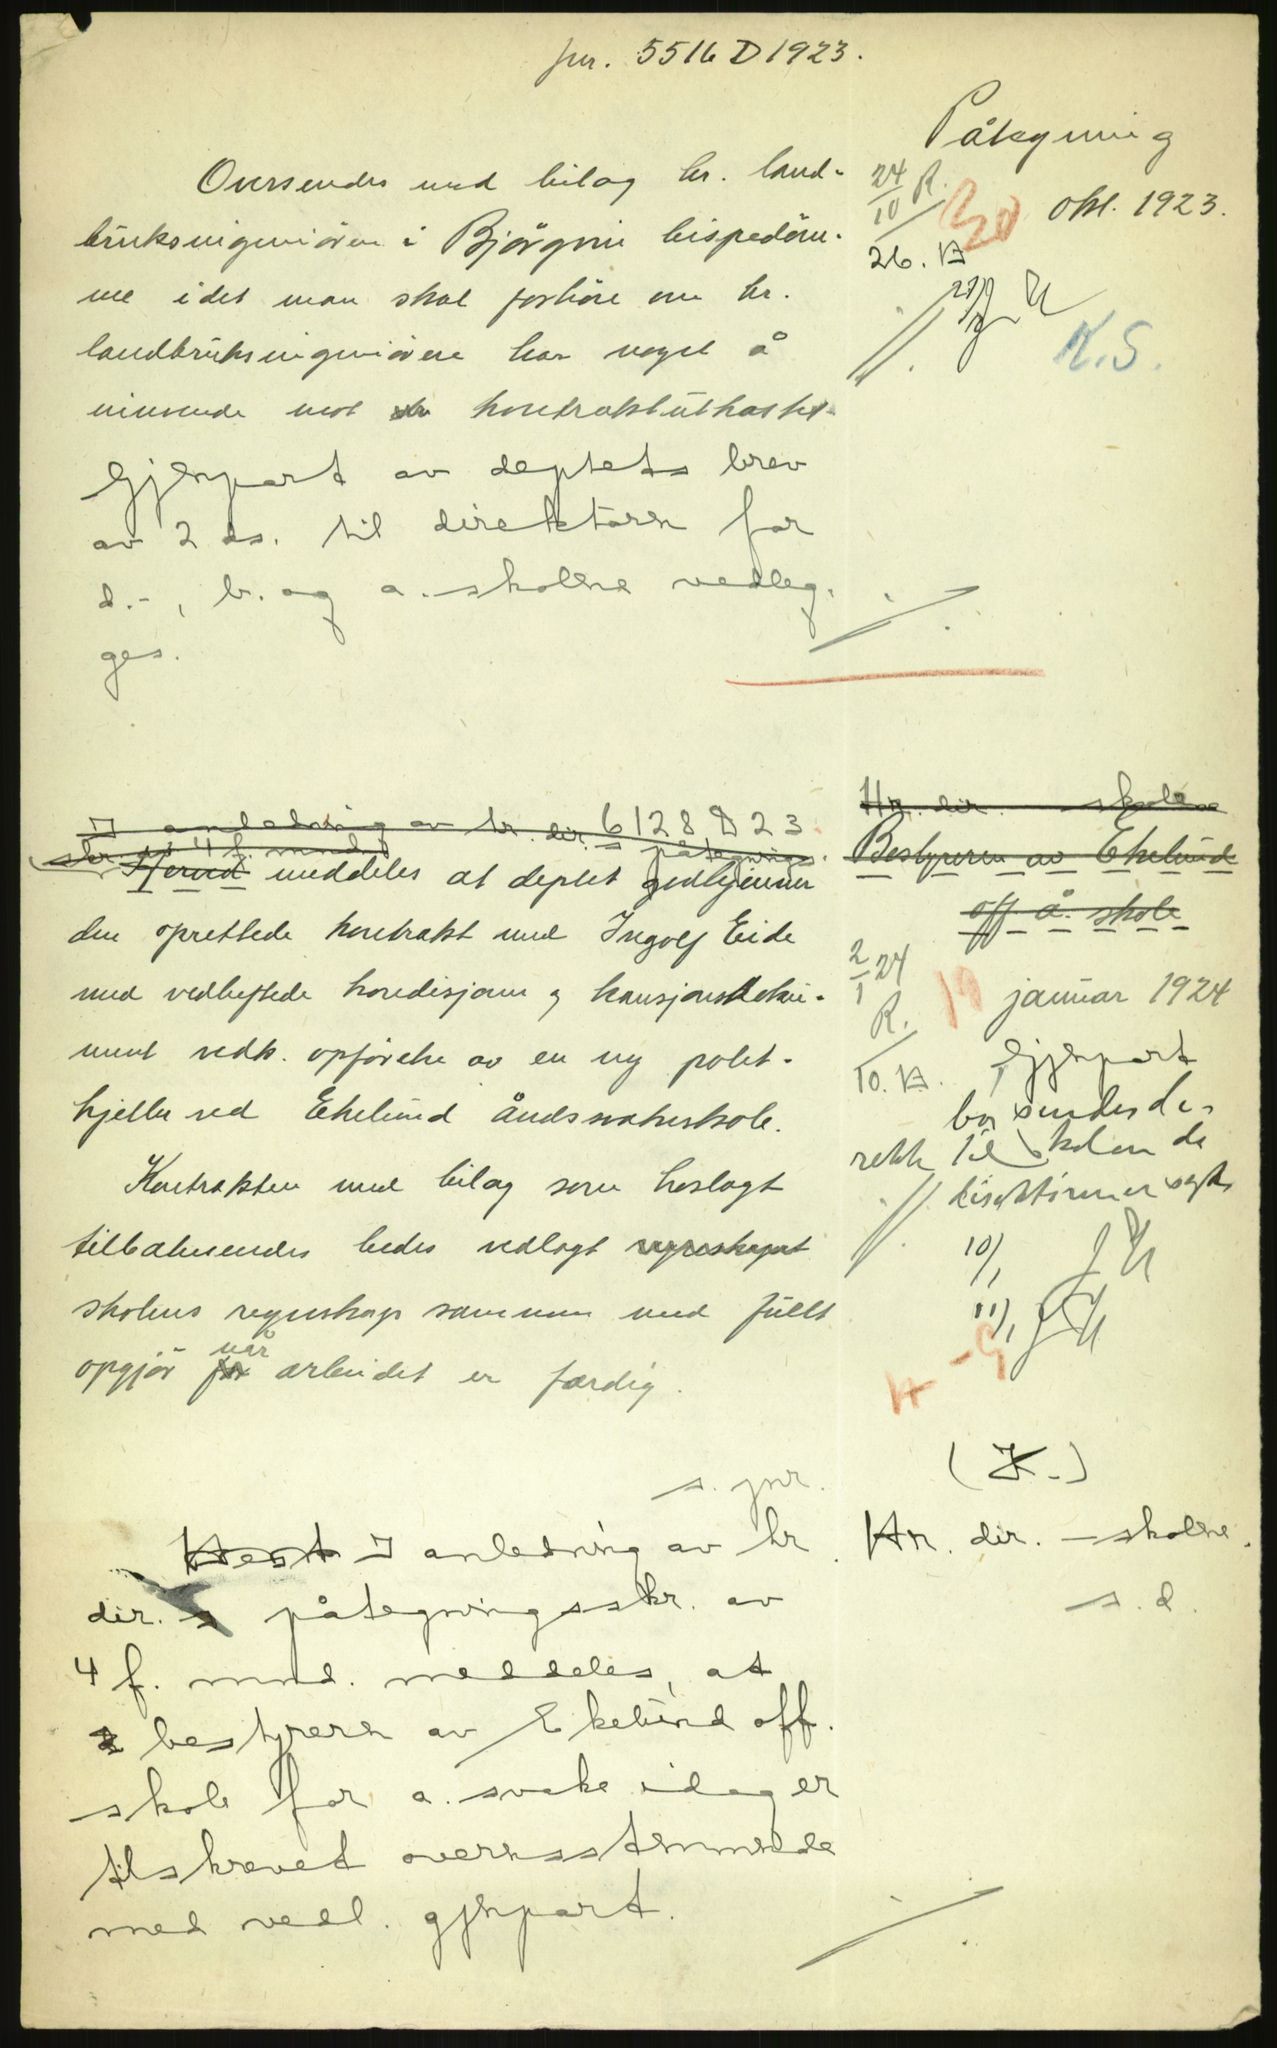 jnr. 5516 D 1923.
Påtegning
24/10 R.
30 okt. 1923.
26. 
K.S.
Oversendes med bilag hr. land-
bruksingeniören i Björgvin bispedöm-
me idet man skal forhöre om hr.
landbruksingeniören har noget å
innvende mot kontraktutkastet.
Gjenpart av deptets brev
av 2 ds. til direktören for
d.-, b. og a. skolene vedleg-
ges.
I anledning av hr. dir. 6128 D 23
skr. av 4 f. mnd. s påtegnings
Herved meddeles at deptet godkjenner
den oprettede kontrakt med Ingolf Eide
med vedheftede kondisjoner og kausjonsdoku-
ment vedk. opförelse av en ny potet-
kjeller ved Ekelund åndssvakeskole.
Kontrakten med bilag som hoslagt
tilbakesendes bedes vedlagt regnskapet
skolens regnskap sammen med fullt
opgjör for når arbeidet er færdig.
Hr. dir. skolene
Bestyreren av Ekelund
off å. skole
2/1 24
R.
19 januar 1924
10.
Gjenpart
bør sendes di-
rekte til skolen da
direktören er
10/1
11/1
(K.)
s. jnr.
Hr. dir. – skolene.
s. d.
I anledning av hr.
dir. s påtegningsskr. av
4 f. mnd. meddeles, at
bestyreren av Ekelund off.
skole for a. svake idag er
tilskrevet overensstemmende
med vedl. gjenpart.